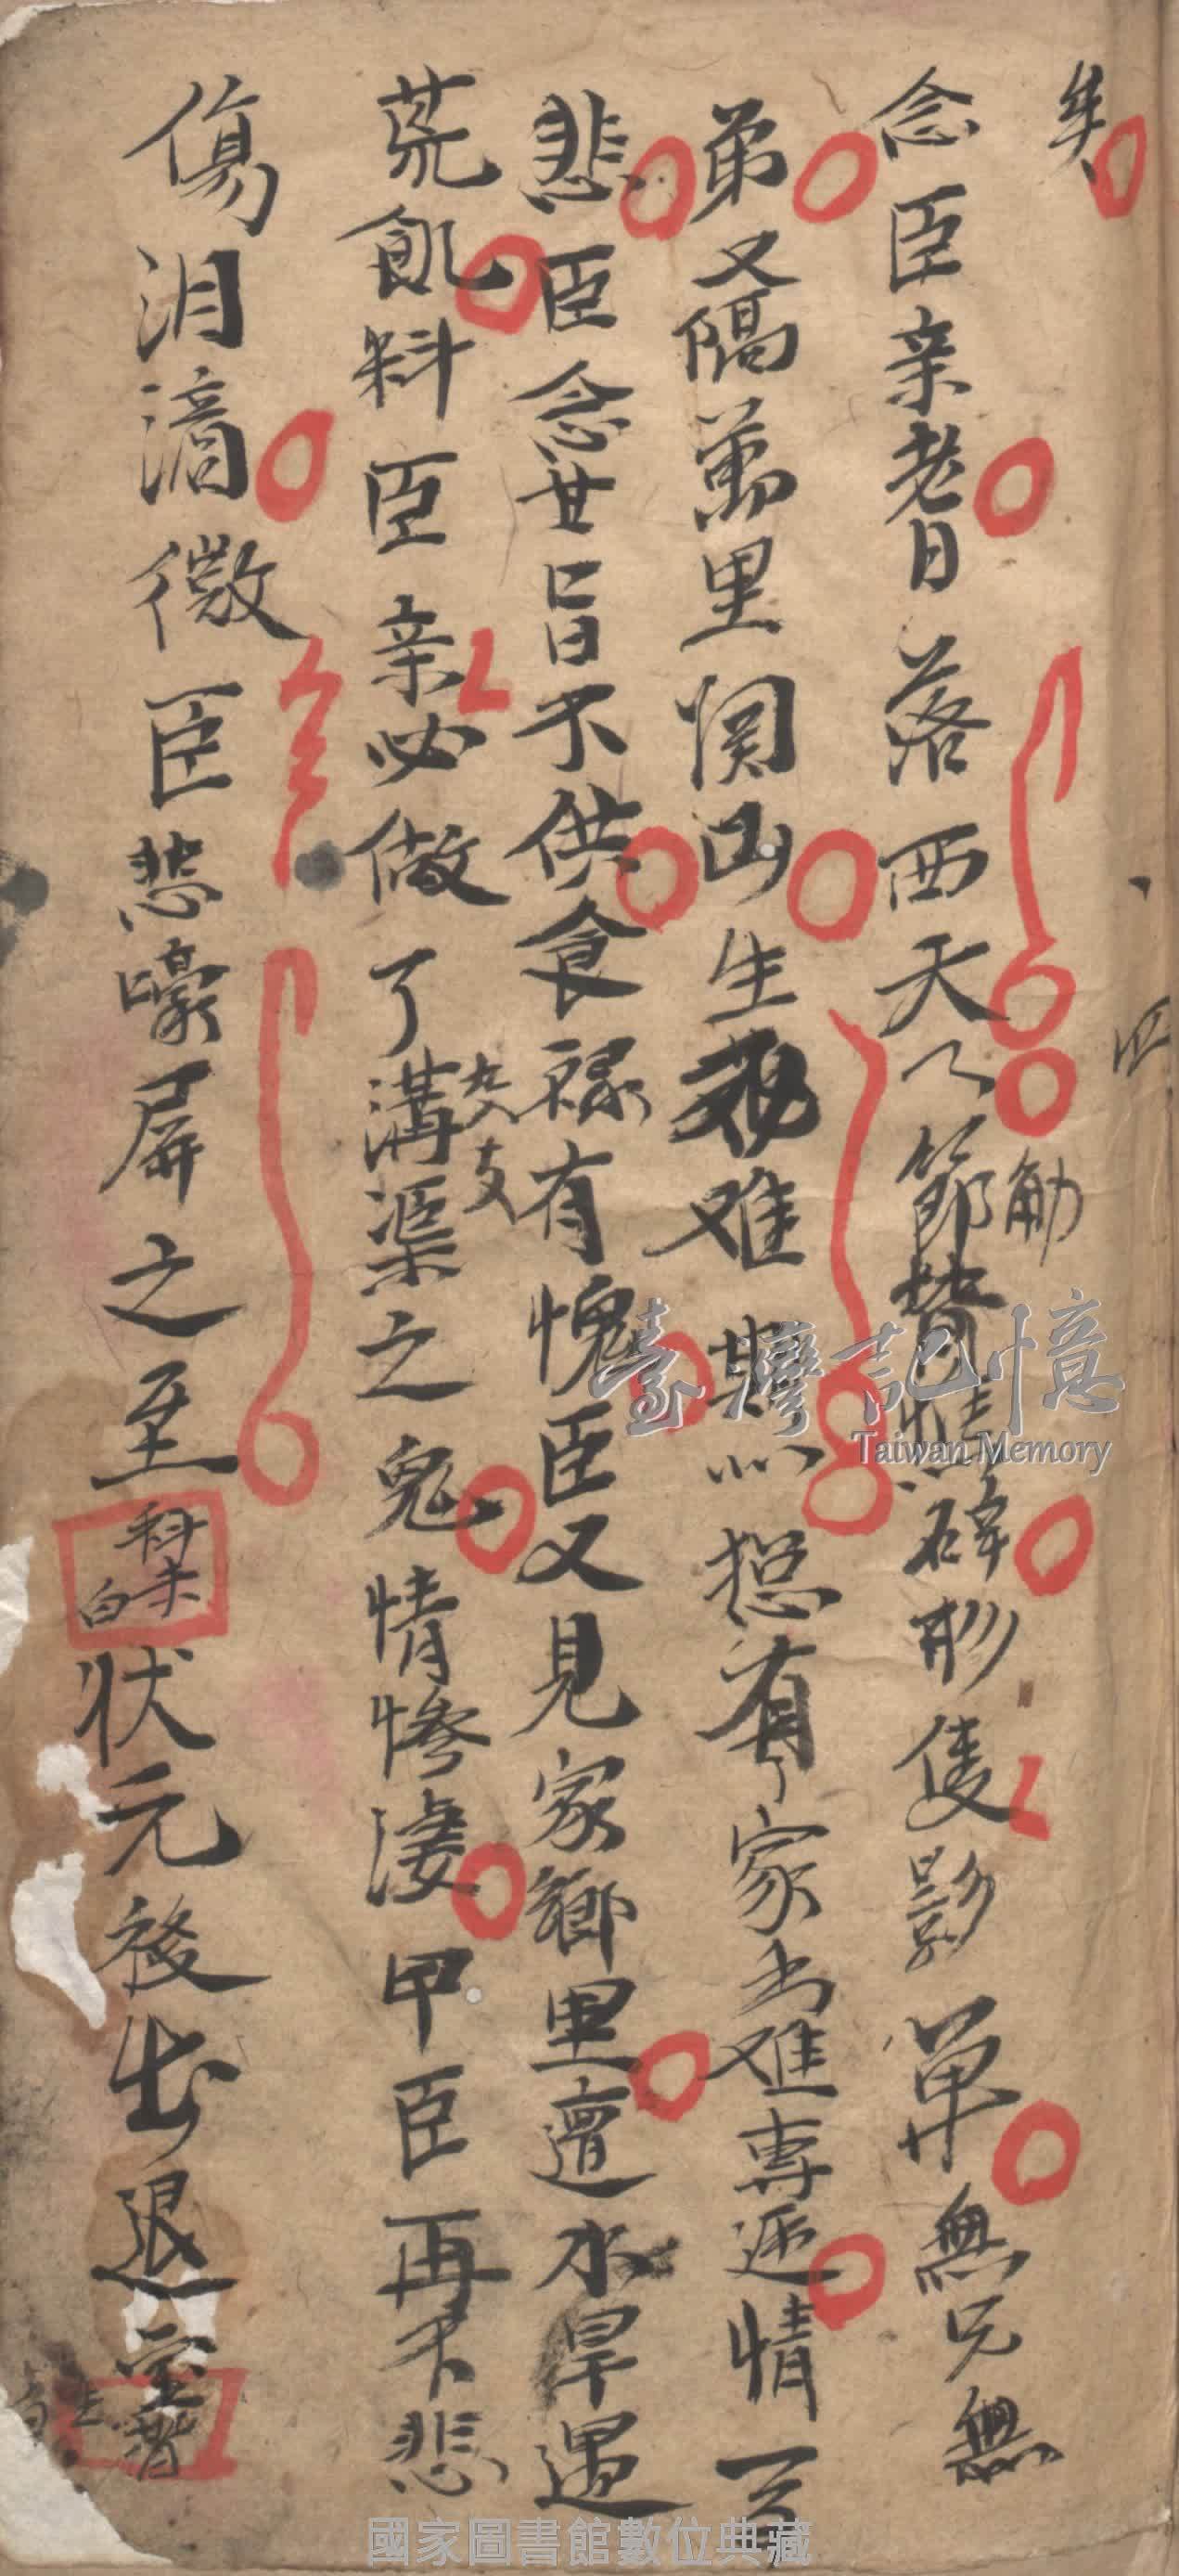 矣
念臣亲老日落西天乀節賛情碎形隻影单無兄無
觔
弟又隔萬里関山生死难期以㧾有了家书难專逓情一百
悲臣念甘旨不供食禄有愧臣又見家鄉里遭水旱遇
荒飢料臣亲必做了溝渠之鬼情慘淒甲臣再不悲
傷泪滴微臣悲嚎屏之至科介白状元後出退堂
臺灣記憶
Taiwan Memory
國家圖書館數位典藏